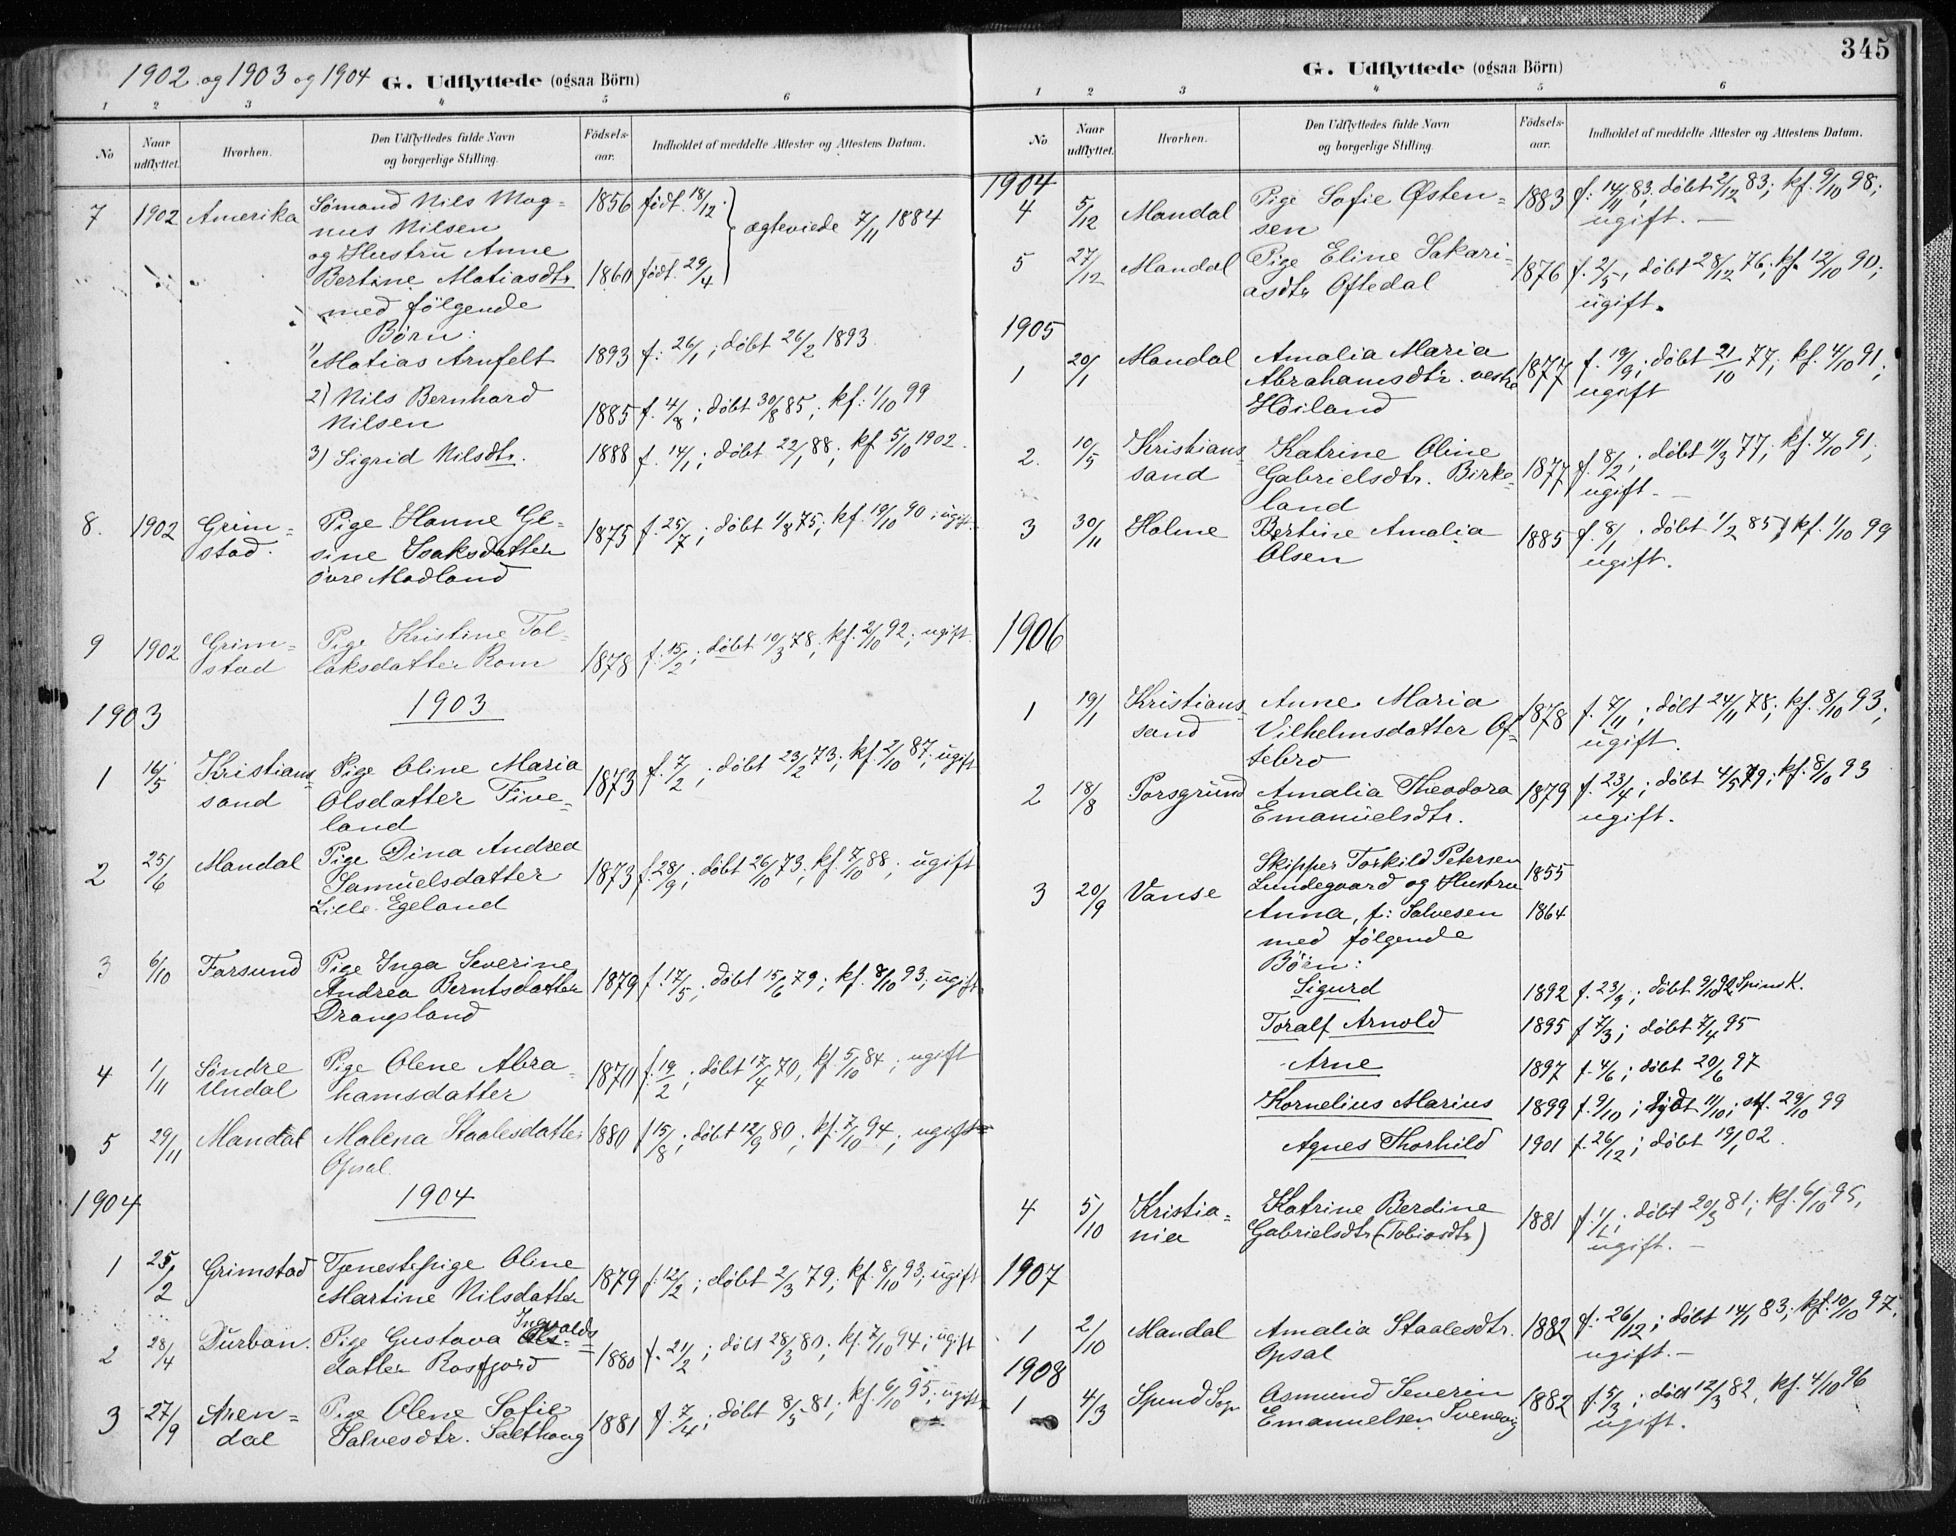 1902 og 1903 og 1904 G. Udflyttede (ogsaa Börn)
1 2 3 4 5 6
No Naar udflyttet. Hvorhen. Den Udflyttedes fulde Navn og borgerlige Stilling. Födselsaar. Indholdet af meddelte Attester og Attestens Datum.
7 1902 Amerika Sømand Nils Mag- 1856 født 18/12
nus Nilsen ægteviede 7/11 1884
og Hustru Anne
Bertine Matiasdtr 1860 født 29/4
med følgende
Børn:
1) Matias Arnfelt 1893 f. 26/1; døbt 26/2 1893
2) Nils Bernhard
Nilsen 1885 f. 4/8; døbt 30/8 85; kf. 1/10 99
3) Sigrid Nilsdtr. 1888 f. 14/1; døbt 22/1 88; kf 5/10 1902.
8. 1902 Grim- Pige Hanne Ge-
stad. sine Isaksdatter 1875 f. 25/7; døbt 1/8 75; kf. 19/10 90; ugift.
övre Madland
9 1902 Grim- Pige Kristine Tol-
stad laksdatter Rom 1878 f. 15/2; døbt 19/3 78; kf. 2/10 92; ugift.
1903 1903
1 16/5 Kristians- Pige Oline Maria
sand Olsdatter Five- 1873 f. 7/2; døbt 23/2 73; kf 2/10 87; ugift
land
2 25/6 Mandal Pige Dina Andrea
Samuelsdatter 1873 f. 28/9; døbt 26/10 73; kf. 7/10 88; ugift
Lille Egeland
3 6/10 Farsund Pige Inga Severine
Andrea Berntsdatter 1879 f. 17/5; døbt 15/6 79; kf. 8/10 93; ugift
Drangsland
4 1/11 Søndre Pige Olene Abra-
Undal hamsdatter 1870 f. 19/2; døbt 17/4 70, kf. 5/10 84; ugift
5 29/11 Mandal Malena Staalesdatter 1880 f 15/8; døbt 12/9 80; kf. 7/10 94; ugift
Opsal.
1904 1904
1 25/2 Grimstad Tjenestepige Oline
Martine Nilsdatter 1879 f. 12/2; døbt 2/3 79; kf. 8/10 93; ugift
2 28/4 Durban. Pige Gustava Ingvalds-
datter Rosfjord 1880 f. 21/2; døbt 28/3 80; kf. 7/10 94; ugift
3 27/9 Aren- Pige Olene Sofie
dal Salvesdtr. Salthaug 1881 f. 7/4; døbt 8/5 81; kf. 6/10 95; ugift
345
G. Udflyttede (ogsaa Börn)
1 2 3 4 5 6
No Naar udflyttet. Hvorhen. Den Udflyttedes fulde Navn og borgerlige Stilling. Födselsaar. Indholdet af meddelte Attester og Attestens Datum.
1904
4 5/12 Mandal Pige Sofie Østen- 1883 f. 14/11 83, døbt 2/12 83; kf. 9/10 98;
sen ugift.
5 27/12 Mandal Pige Eline Sakari-
asdtr Oftedal 1876 f. 2/5, døbt 28/12 76; kf. 12/10 90;
ugift.
1905
1 20/1 Mandal Amalia Maria
Abrahamsdtr. vestre 1877 f. 19/9; døbt 21/10 77; kf. 4/10 91;
Höiland ugift
2. 10/5 Kristians- Katrine Oline
sand Gabrielsdtr. Birke- 1877 f. 8/2; døbt 11/3 77; kf. 4/10 91;
land ugift.
3 30/11 Holme Bertine Amalia
Olsen 1885 f. 8/1; døbt 1/2 85; kf. 1/10 99
ugift.
1906
1 19/1 Kristians- Anne Maria
sand Vilhelmsdatter Of- 1878 f. 7/11; døbt 24/11 78; kf. 8/10 93;
tebro ugift.
2 18/8 Porsgrund Amalia Theodora 1879 f. 23/4; døbt 4/5 79; kf. 8/10 93
Emanuelsdtr. ugift.
Skipper Torkild Petersen 1855
3 20/9 Vanse Lundegaard og Hustru
Anna, f: Salvesen 1864
med følgende
Børn:
Sigurd 1892 f. 23/9; døbt 9/10 92 Spind K.
Toralf Arnold 1895 f 7/3; døbt 7/4 95
Arne 1897 f. 4/6; døbt 20/6 97
Kornelius Marius 1899 f. 9/10; hjdt 11/10; stf. 29/10 99
Agnes Thorhild 1901 f. 26/12; døbt 19/1 02.
4 5/10 Kristia- Katrine Berdine
nia Gabrielsdtr (Tobiasdtr) 1881 f. 1/1; døbt 20/3 81; kf. 6/10 95,
ugift.
1907
1 2/10 Mandal Amalia Staalesdtr. 1882 f. 26/12; døbt 14/1 83; kf. 10/10 97,
Opsal ugift.
1908
1 4/3 Spind Sogn Asmund Severin 1882 f. 5/3; døbt 12/3 82, kf. 4/10 96
Emanuelsen Svenevig ugift.